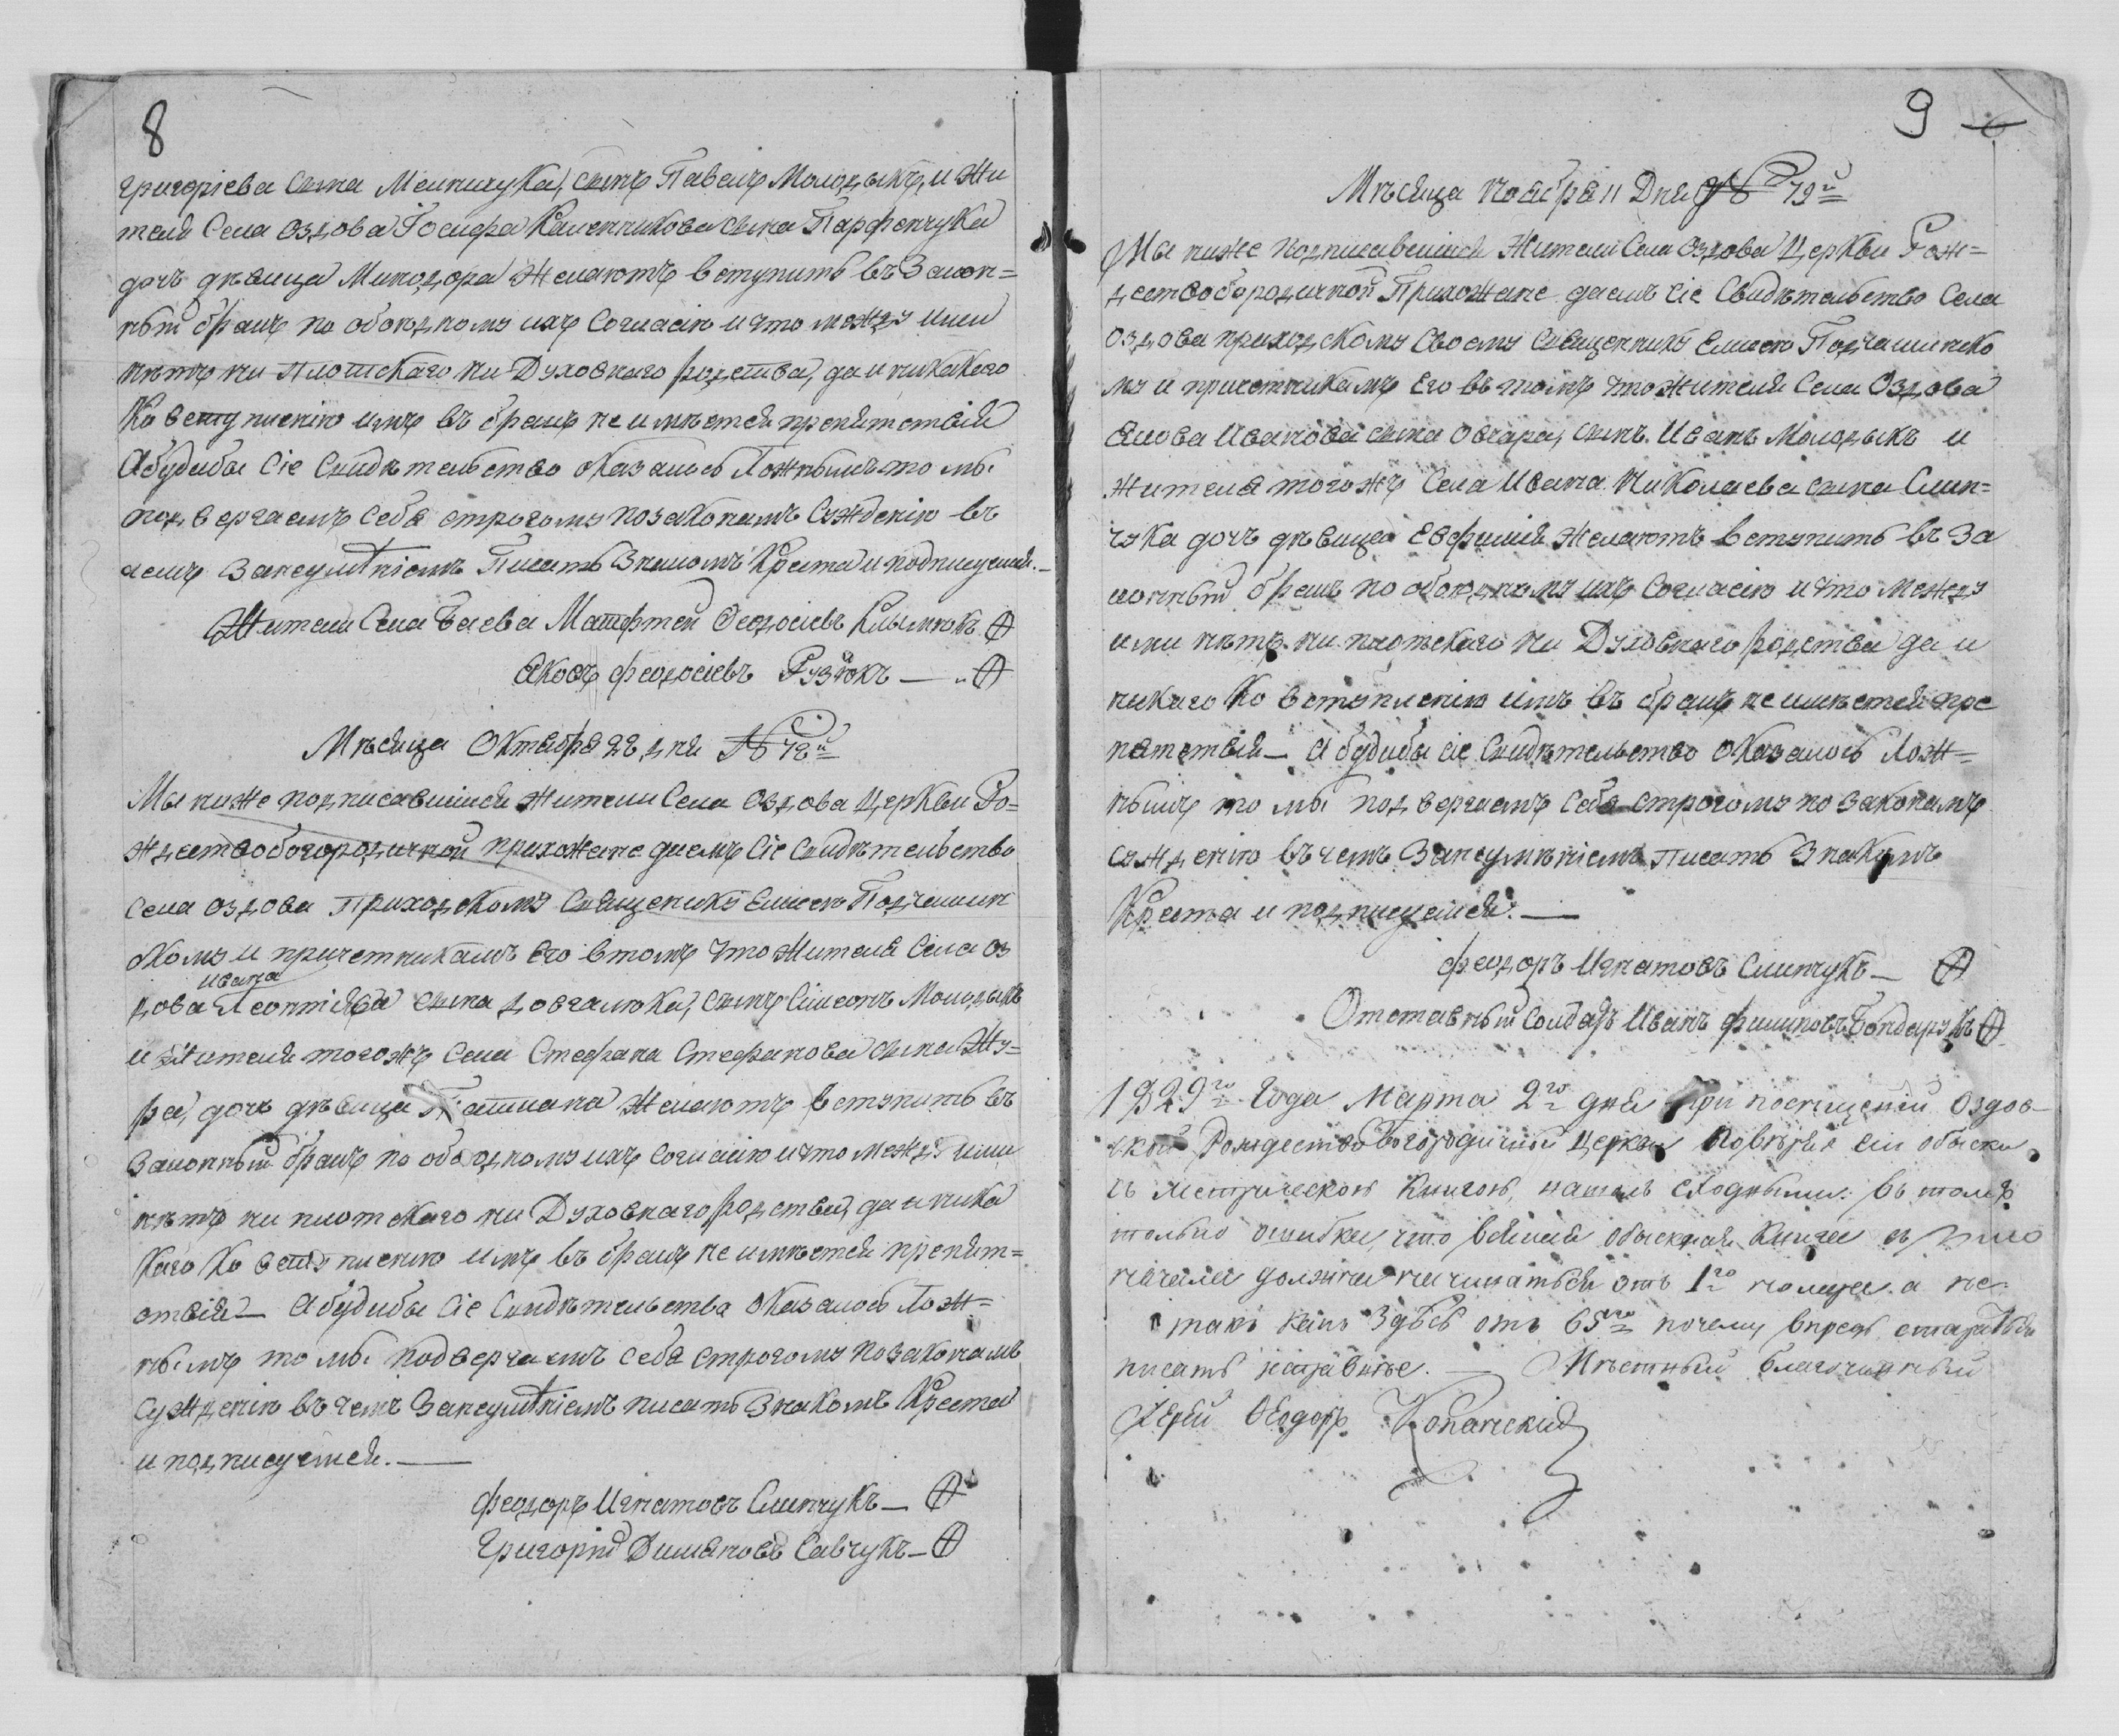 8
григоріева сына Мелничука, сынъ Павелъ Молодыкъ, и Жи
теля Села Оздова Іосифа Каленникова сына Парфенчука
дочъ дѣвица Минодора Желаютъ вступить въ Закон=
ный бракъ по обоюдному ихъ Согласію и что между ими
нѣтъ ни плотскаго ни Духовнаго родства, да и никакого
Ко вступленію имъ въ бракъ не имѣется препятствія
А будибы Сіе Свидѣтельство оказалось Ложнымъ то мы
подвергаемъ Себя строгому по законамъ Сужденію въ
чемъ Занеумѣніемъ Писать Знакомъ Креста и подписуемся.—
Жители Села Баева Матфтей Феодосіевъ Климюкъ
Яковъ феодосіевъ —
Мѣсяца Октября 22 дня № 72й
Мы ниже подписавшіися жители Села Оздова Церкви Ро=
ждествобогородичной прихожане даемъ Сіе Свидѣтельство
Села Оздова Приходскому Священику Елисею Подчашин
скому и причетникамъ Его втомъ что Жителя Села Оз
ивана
дова Леонтіева сына Довгалюка, сынъ Симеонъ Молодыкъ
и Жителя тогожъ Села Стефана Стефанова сына Жу=
ра, дочъ дѣвица Татиана Желаютъ вступить въ
Законный бракъ по обоюдному ихъ согласію и что между ими
нѣтъ ни плотскаго ни Духовнаго родства, да и ника
каго Ко вступленію имъ въ бракъ не имѣется препят=
ствія — А будибы Сіе Свидѣтельства оказалось Лож=
нымъ то мы подвергаемъ себя строгому по законамъ
Сужденію въ чемъ Занеумѣніемъ писать Знакомъ Креста
и подписуемся. —
феодоръ Игнатовъ Слипчукъ —
Григорій Димяновъ Савчукъ —
9
Мѣсяца ноября 11 Дня № 73й
Мы ниже подписавшіися Жители Села Оздова Церкви Рож=
дествобородичной Прихожане даемъ сіе Свидѣтельство Села
Оздова приходскому Своему Священнику Елисею Подчашинско
му и причетникамъ Его въ томъ что Жителя Села Оздова
Якова Иванова сына Овчара, сынъ Иванъ Молодыкъ и
жителя тогожъ Села Ивана Николаева сына Слип=
чука дочъ дѣвица Евфимія желаютъ вступить въ За
конный бракъ по обоюдному ихъ Согласію и что между
ими нѣтъ ни плотскаго ни Духовнаго родства да и
никаго Ко вступленію имъ въ бракъ не имѣется пре
пятствія — А будибы сіе Свидѣтельство оказалось Лож=
нымъ то мы подвергаемъ себя строгому по законамъ
сужденію въ чемъ Занеумѣніемъ писать Знакомъ
Креста и подписуемся. —
феодоръ Игнатовъ Слипчукъ —
Отставный Солдатъ Иванъ Филиповъ Бондарукъ
1829го Года Марта 2го дня При посѣщеніи Оздов-
ской Рождество Богородичной Церкви повѣряя сіи обыски
съ метрическою Книгою, нашолъ сходными: въ томъ
только ошибка, что всякая обыскная Книга съ
начала должна начинаться отъ 1го номера а не
такъ какъ Здѣсь отъ 65го почему впредь статься
писать исправнѣе. — Мѣстный благочинный
Іерей Феодоръ